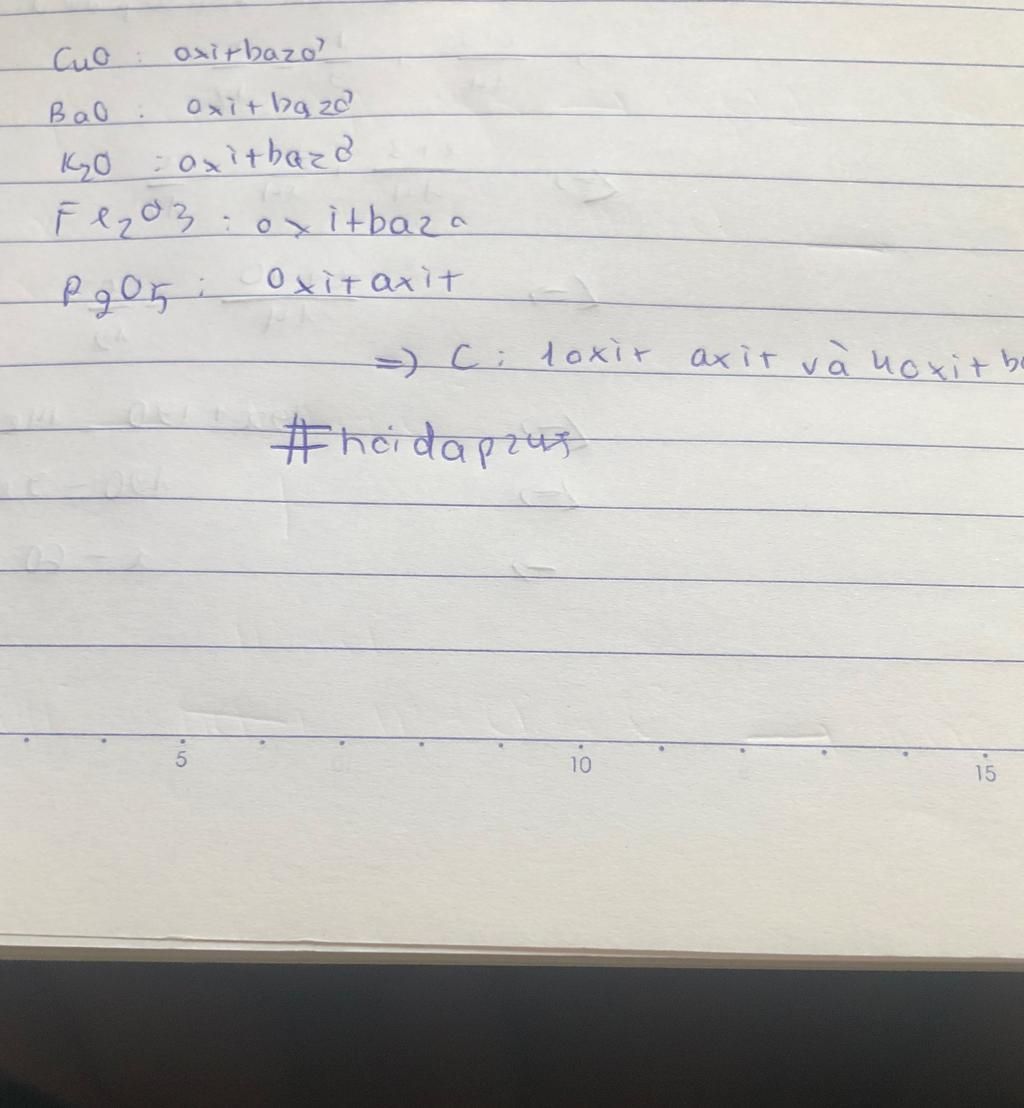 CuO : oxit bazơ
BaO : oxit bazơ
K2O : oxit bazơ
Fe2O3 : oxit baz
P2O5 : Oxit axit
=> C : 1 oxit axit và 4 oxit b
#hoidapzus
5 10 15